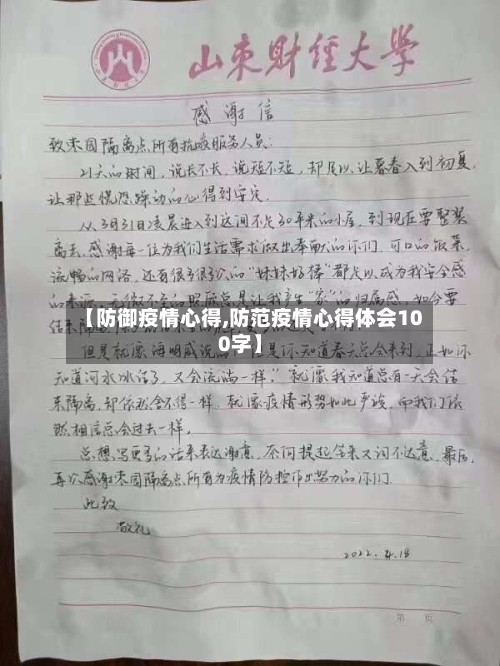 山东财经大学
感谢信
致枣园隔离点所有抗疫服务人员：
21天的时间，说长不长，说短不短，却足以让暮春入到初夏，
让那些慌恐、躁动的心得到安定。
从3月31日凌晨进入到这间不足30平米的小屋，到现在要整装
离去，感谢每一位为我们生活需求做出奉献的你们，可口的饭菜，
流畅的网络，还有很多很多次的“妹妹好得”都足以成为我安全感
的来源，无微不至的照顾总是让我产生“家”的归属感，如今要
结束隔
【防御疫情心得,防范疫情心得体会10
0字】
但是就像海明威说的 是你知道春天总会来到，正如你
知道河水冰结了，又会流淌一样。”就像我知道总有一天会结
束隔离，却依然舍不得一样，就像疫情形势如此严峻，而我们依
然相信总会过去一样。
总想写更多的话来表达谢意，奈何提起笔来又词不达意，最后，
再次感谢枣园隔离点所有为疫情防控作出努力的你们。
此致
敬礼
2022.4.18
第 页